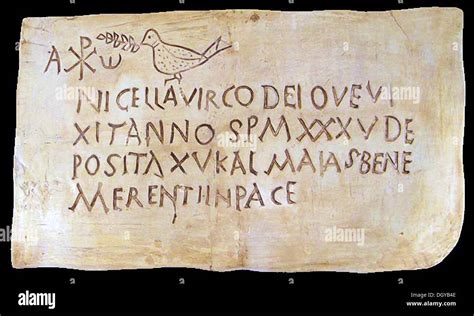 Α ☧ ω
NICELLA VIRCO DEI QVE V
XIT ANNOS P M XXXV DE
POSITA XV KAL MAIAS BENE
MERENTI IN PACE
alamy stock photo
DGYB4E
www.alamy.com